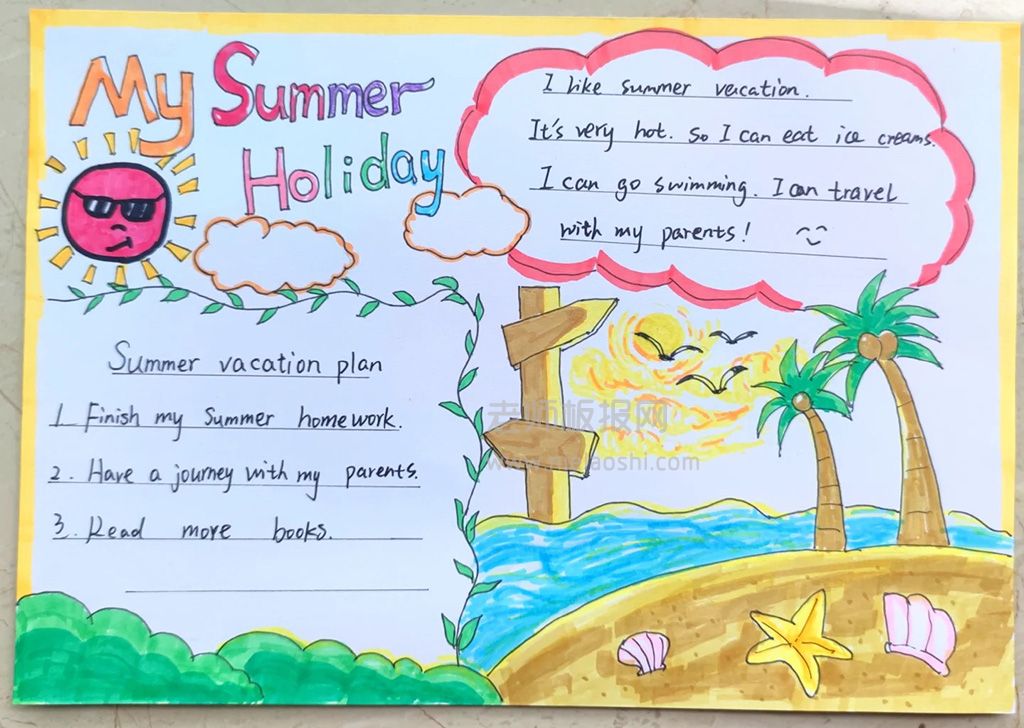 My Summer
Holiday
I like summer vacation.
It's very hot. So I can eat ice creams.
I can go swimming. I can travel
with my parents!
Summer vacation plan
1. Finish my Summer homework.
2. Have a journey with my parents.
3. Read more books.
老师板报网